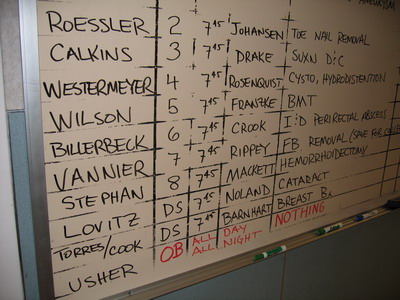 ROESSLER 2 745 JOHANSEN TOE NAIL REMOVAL
CALKINS 3 745 DRAKE SUXN D:C
WESTERMEYER 4 745 ROSENQUIST CYSTO, HYDRODISTENTION
WILSON 5 745 FRANZKE BMT
BILLERBECK 6 745 CROOK I:D PERIRECTAL ABSCESS
VANNIER 7 745 RIPPEY FB REMOVAL (SAVE FOR
STEPHAN 8 745 MACKETT HEMORRHOIDECTOMY
LOVITZ DS 745 NOLAND CATARACT
TORRES/COOK DS 745 BARNHART BREAST Bx
USHER OB ALL DAY NOTHING
ALL NIGHT